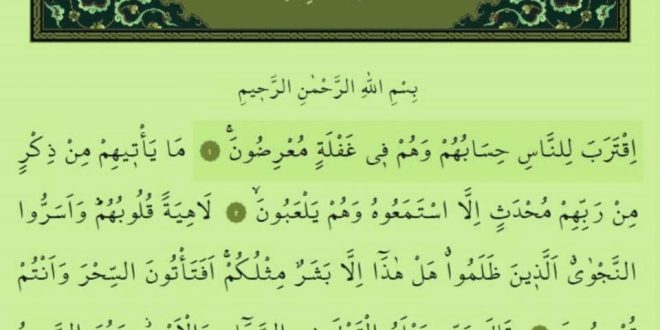 بِسْمِ اللهِ الرَّحْمٰنِ الرَّحٖيمِ
اِقْتَرَبَ لِلنَّاسِ حِسَابُهُمْ وَهُمْ فٖى غَفْلَةٍ مُعْرِضُونَۚ ١ مَا يَأْتٖيهِمْ مِنْ ذِكْرٍ
مِنْ رَبِّهِمْ مُحْدَثٍ اِلَّا اسْتَمَعُوهُ وَهُمْ يَلْعَبُونَۙ ٢ لَاهِيَةً قُلُوبُهُمْۜ وَاَسَرُّوا
النَّجْوٰىۗ اَلَّذٖينَ ظَلَمُواۗ هَلْ هٰذَٓا اِلَّا بَشَرٌ مِثْلُكُمْۚ اَفَتَأْتُونَ السِّحْرَ وَاَنْتُمْ